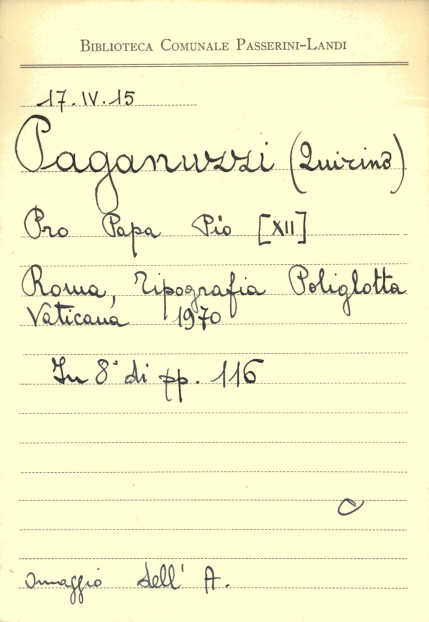 BIBLIOTECA COMUNALE PASSERINI-LANDI
17.IV.15
Paganuzzi (Quirino)
Pro Papa Pio [XII]
Roma, Tipografia Poliglotta
Vaticana 1970
In 8° di pp. 116
omaggio dell' A.